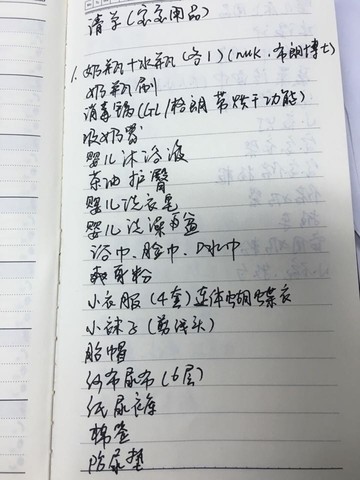 清单(宝宝用品)
1. 奶瓶+水瓶(各1)(NUK、布朗博士)
奶瓶刷
消毒锅(GL/格朗 带烘干功能)
吸奶器
婴儿沐浴液
茶油护臀
婴儿洗衣皂
婴儿洗澡盆
浴巾、脸巾、口水巾
爽身粉
小衣服(4套)连体蝴蝶衣
小袜子(剪线头)
胎帽
纱布尿布(6层)
纸尿裤
棉签
防尿垫